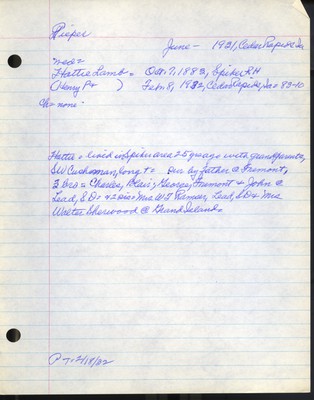 Pieper
June - 1921, Cedar Rapids Ia
nee =
Hattie Lamb = Oct. 7, 1882, Spiker RH
(Henry P+ ) Feb. 8, 1922, Cedar Rapids, Ia = 83-10
Ch = none -
Hattie = lived in Spiker area 25 y ago with grandparents,
SW Cushman, long t =  Sur by father @ Fremont,
3 Bro = Charles, Blair, George, Fremont & John @
Lead, S D: & 2 sis = Mrs W J Remeer, Lead, S D & Mrs
Walter Sherwood @ Grand Island.
P-T: 2/18/22